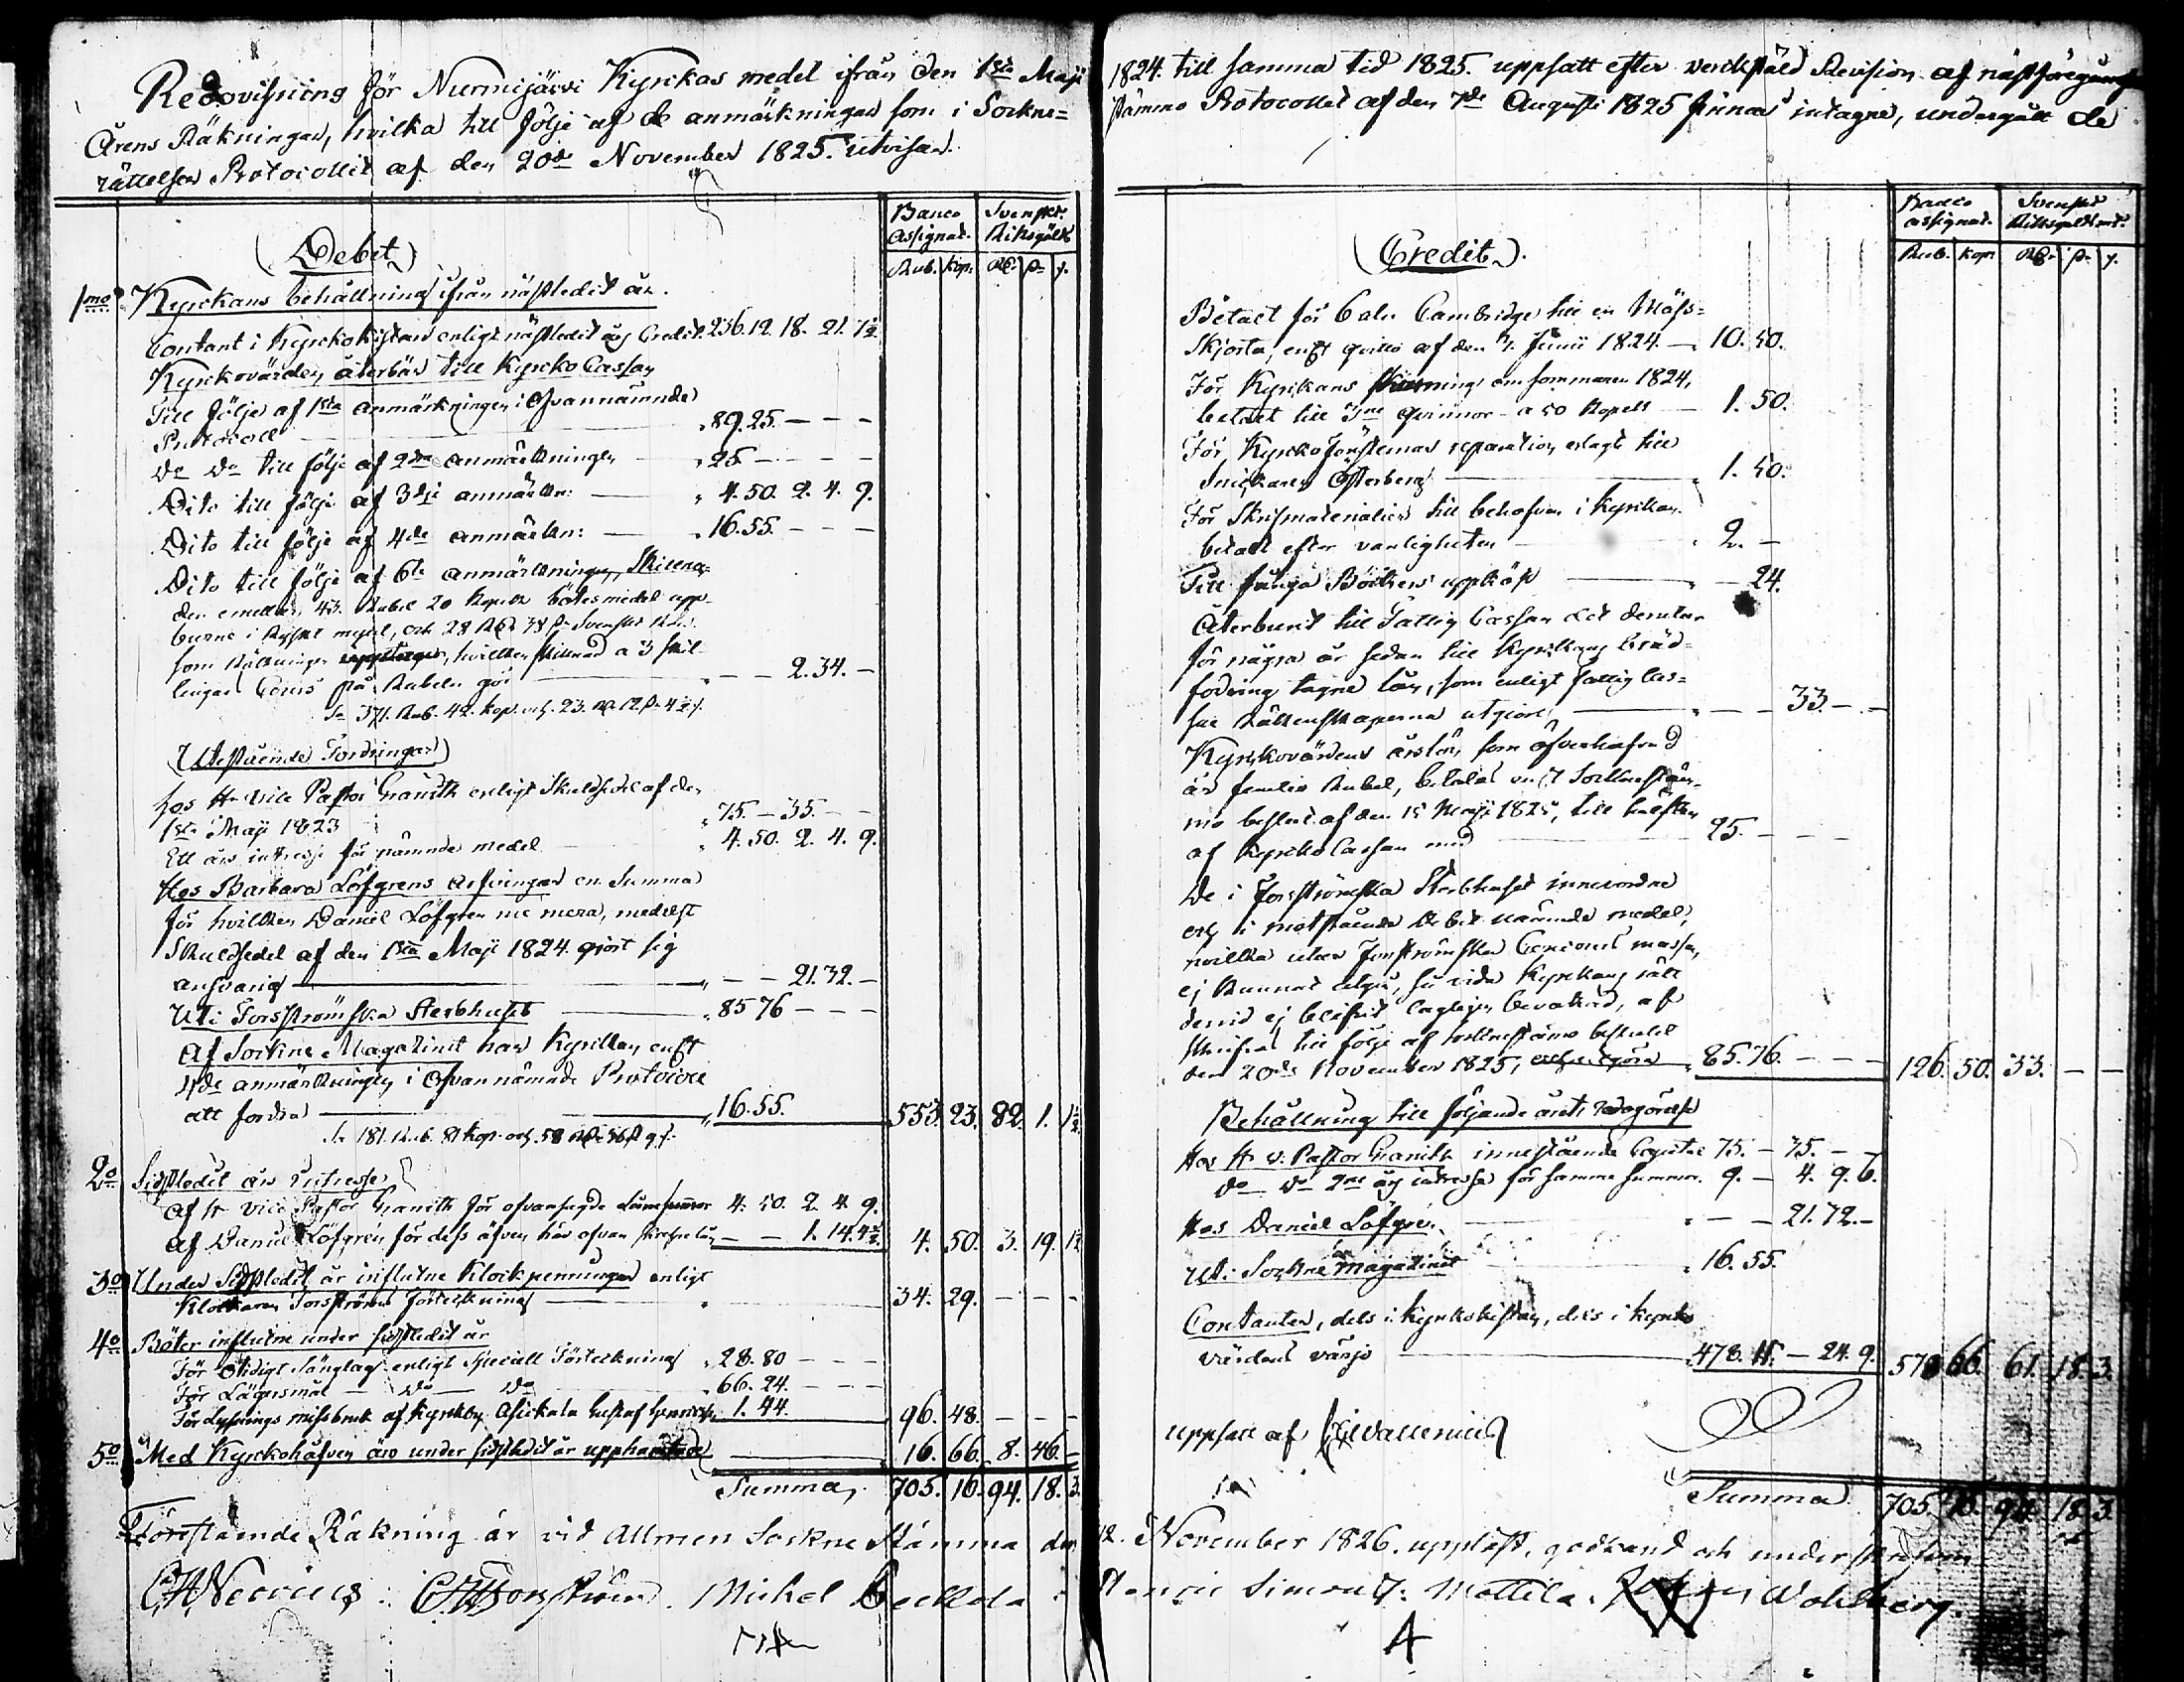 Redovisning för Nurmijärvi Kyrckas medel ifrån den 1sta Maji
1824. till samma tid 1825. uppsatt efter verckstäld Revision af nästföregående
Årens Räkningar, hvilka till följe af de anmärkningar som i Sockne=
stämmo Protocollet af den 7de Augusti 1825 finnas intagne, undergått de
rättelser Protocollet af den 20de November 1825. utvisar.
Banco Assignat. Svenskt Riksgäld
Rub. Kop. Rd. s. r.
Debet
1mo Kyrckans behållning ifrån nästledit år.
Contant i Kyrckokistan enligt nästledit års Credit. 236.12. 18. 21. 7½
Kyrckovärden återbär till Kyrcko Cassan
Till följe af 1sta anmärkningen i Ofvannämnde
Protocoll 89.25. — — —
Do Do till följe af 2dra anmärkningen 25 — — — —
Dito till följe af 3dje anmärkn: 4. 50. 2. 4. 9.
Dito till följe af 4de anmärkn: 16.55. — — —
Dito till följe af 6te anmärkningen, Skillna=
den emellan 43. Rubel 20 Kopek bötesmedel upp-
burne i Ryskt mynt, och 28 Rd. 38 s. Svenskt
som Räkningen upptager, hvilken skillnad a 3 skil-
lingar Cours på Rubeln gör — — 2. 34. —
Sa 371. Rub. 42. kop. och 23. Rd. 12 s. 4½ r.
Utestående Fordringar
hos Hr Vice Pastor Granith enligt Skuldsedel af den
1sta Maji 1823 75. — 35. — —
Ett års intresse för nämnde medel 4. 50. 2. 4. 9.
Hos Barbara Löfgrens arfvingar en Summa
för hvilken Daniel Löfgren nu mera, medelst
Skuldsedel af den 1sta Maji 1824. gjort sig
ansvarig — — 21.32. —
Uti Forsströmska Sterbhuset 85 76 — — —
Af Sockne Magazinet har Kyrckan enligt
4de anmärkningen i Ofvannämnde Protocoll
att fordra 16.55. 553. 23. 82. 1. 1½
Sa 181. Rub. 81 kop. och 58 Rd. 36 s. 9 r.
2o Sistledit års Intresse
af Hr Vice Pastor Granith för ofvansagde Lånesumma 4. 50. 2. 4. 9.
af Daniel Löfgren för dess äfven här ofvan skrefne lån — — 1. 14. 4½ 4. 50. 3. 19. 1½
3o Under Sistledit år influtne Klockpenningar enligt
Klockaren Forsströms förteckning 34. 29. — — —
4o Böter influtne under sistledit år
För Otidigt Sänglag enligt Speciell Förteckning 28. 80 — — —
För Lägersmål — Do — Do 66. 24. — — —
För Lysnings missbruk af Kyrckby 1. 44. 96. 48. — — —
5o Med Kyrckohåfven äro under sistledit år upphämtade 16. 66. 8. 46. —
Summa. 705. 16. 94. 18. 3.
Credit.
Banco assignat. Svenskt Riksgälds
Rub. kop. Rd. s. r.
Betalt för 6 alnar Cambridge till en Mäss=
Skjorta, enligt qvitto af den Junii 1824. — 10. 50.
För Kyrckans skurning om sommaren 1824,
betalt till 3ne qvinnor a 50 Kopek — 1. 50.
För Kyrckofönsternas reparation erlagt till
Snickaren Österberg 1. 50.
För Skrifmaterialier till behofven i Kyrckan
betalt efter vanligheten 2. —
Till Böckers uppköp — 24.
Återburit till Fattig Cassan det derutur
för några år sedan till Kyrckans bräd=
fodring tagne lån, som enligt fattig Cas=
sae Räkenskaperna utgiort — — 33. — —
Kyrckovärdens årslön, som öfverhufvud
är femtio Rubel, betalas enligt Sockenstäm-
mo beslut af den 15 Maji 1825, till hälften
af Kyrcko Cassan med 25. — — —
De i Forsströmska Sterbhuset innevordne
och i motstående Debet nämnde medel,
hvilka utur Forsströmska massan,
ej kunnat utgå, så vida Kyrckans rätt
dervid ej blifvit lagligen bevakad, af
skrifvas till följe af sockenstämmo beslutet
den 20de November 1825, 85. 76. — — — 126. 50. 33. — —
Behållning till följande årets redogörelse
Hos Hr v. Pastor Granith innestående Capital 75. — 35. —
Do — Do 2ne års intresse för samma summa. 9. — 4. 9. 6.
Hos Daniel Löfgren — — 21. 72. —
Uti Sockne magazinet 16. 55.
Contanter, dels i Kyrckokistan, dels i Kyrcko
värdens värjo 478. 11. — 24. 9. 578 66. 61. 18. 3.
uppsatt af Wallenius
Summa 705. 16. 94. 18. 3.
Förestående Räkning är vid Allmen Sockne Stämma den 12. November 1826. uppläst, godkand och underskrefven
Neovius. C Forsström. Michel Seckola. Simon Mattila. Wahlberg.